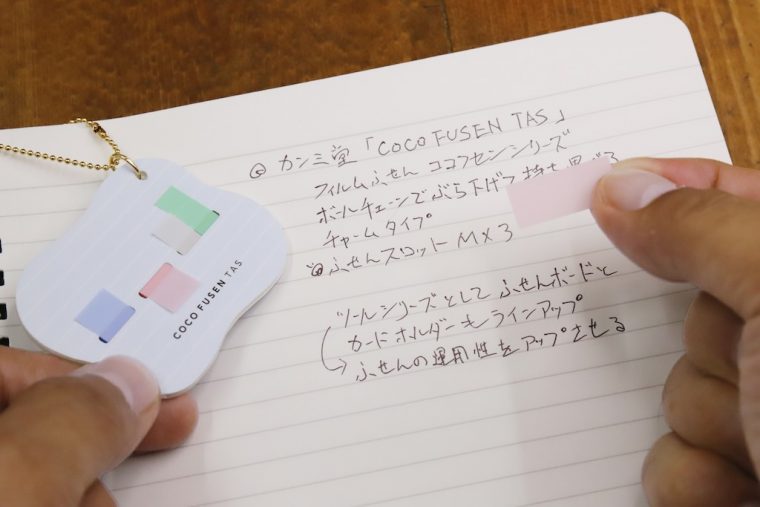 カンミ堂「COCO FUSEN TAS」
フィルムふせん ココフセンシリーズ
ボールチェーンでぶら下げて持ち運べる
チャームタイプ
ふせんスロット M×3
ツールシリーズとして ふせんボードと
カードホルダーもラインアップ
→ ふせんの運用性をアップさせる
COCO FUSEN TAS